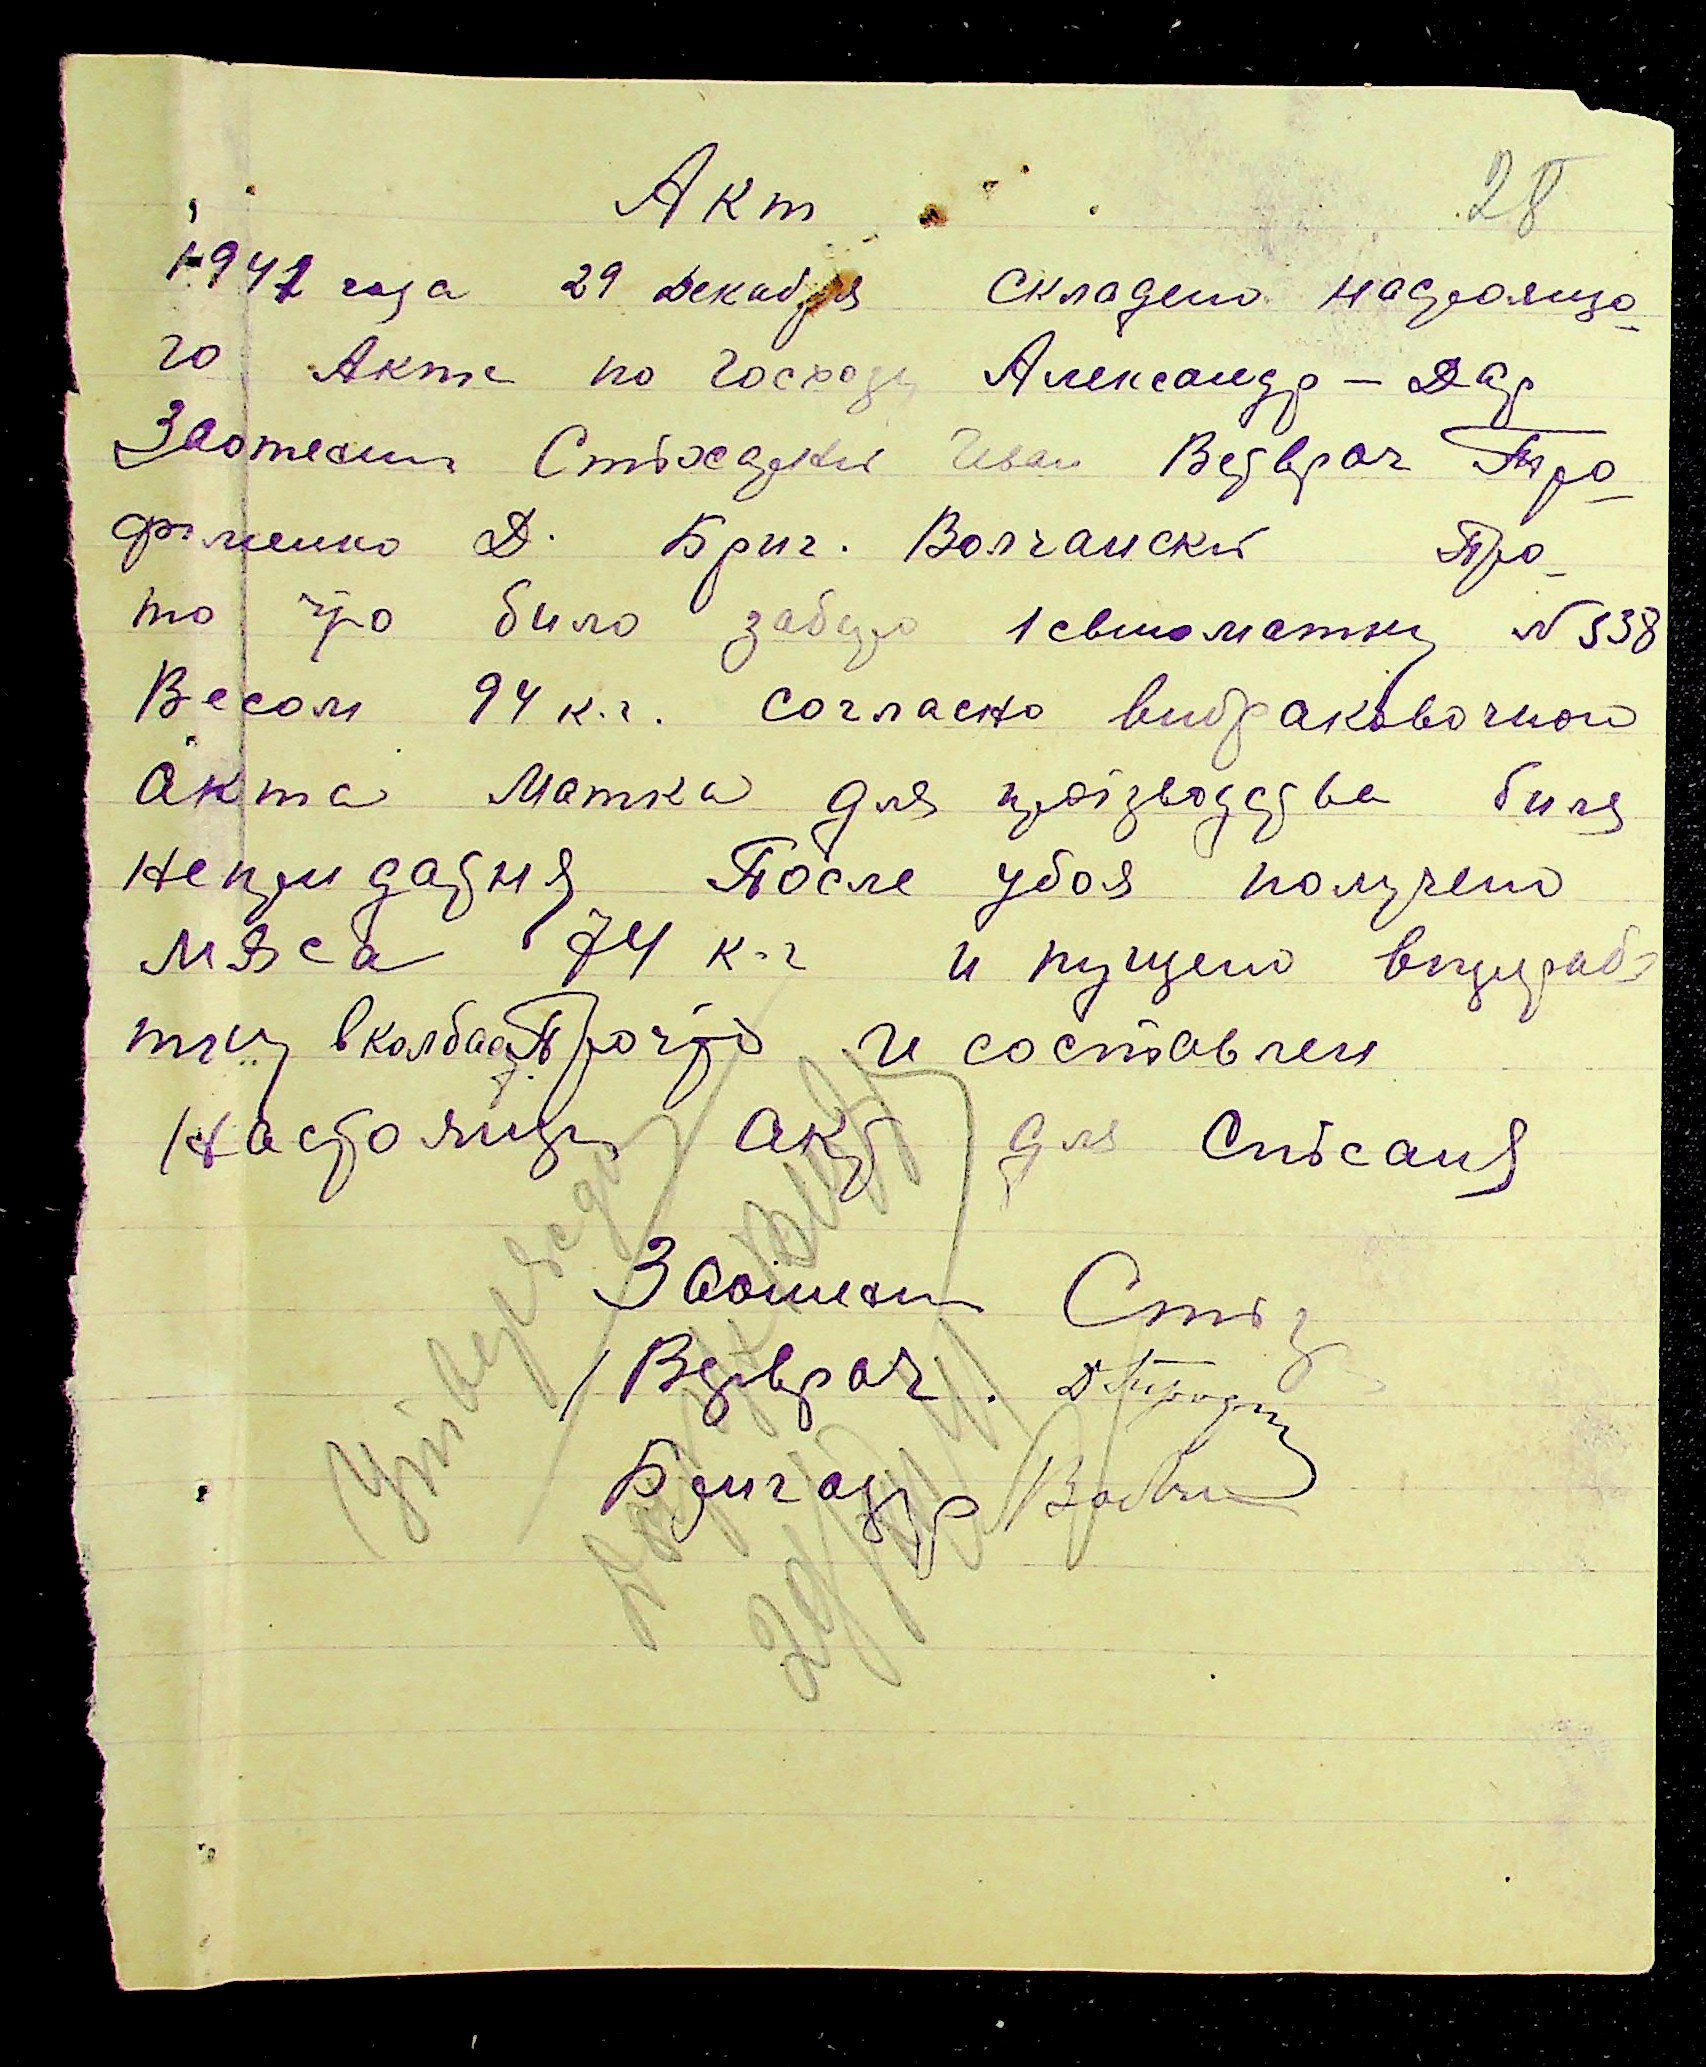 28
Акт
1942 года 29 Декабря складено настоящо-
го Акта по Госходу Александр-Дар
Зоотехник Стіхадкий Иван Ветврач Тро-
фименко Д. Бриг. Волчанский Про-
то что било забито 1 свиноматку № 538
Весом 94 к.г. согласно вибраковочной
акта Матка для проізводства била
непридатня После убоя получено
мяса 74 к-г и пущено впереробо
тку в колбас Про что и составлен
настоящий акт для Спісания
Зоотехник
Ветврач.
Бригадір
Утверждаю
29/XII